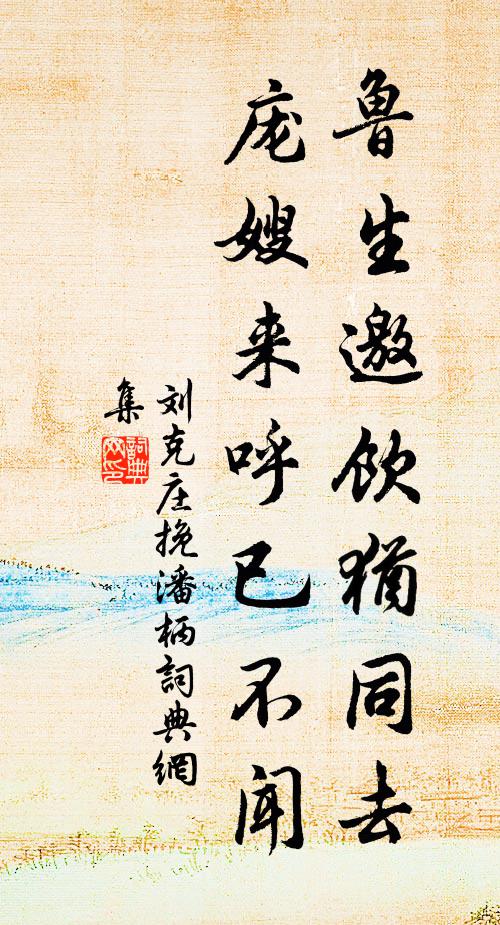 鲁生邀饮犹同去
庞嫂来呼已不闻
刘克庄挽潘柄詞典網
集
詞典
网